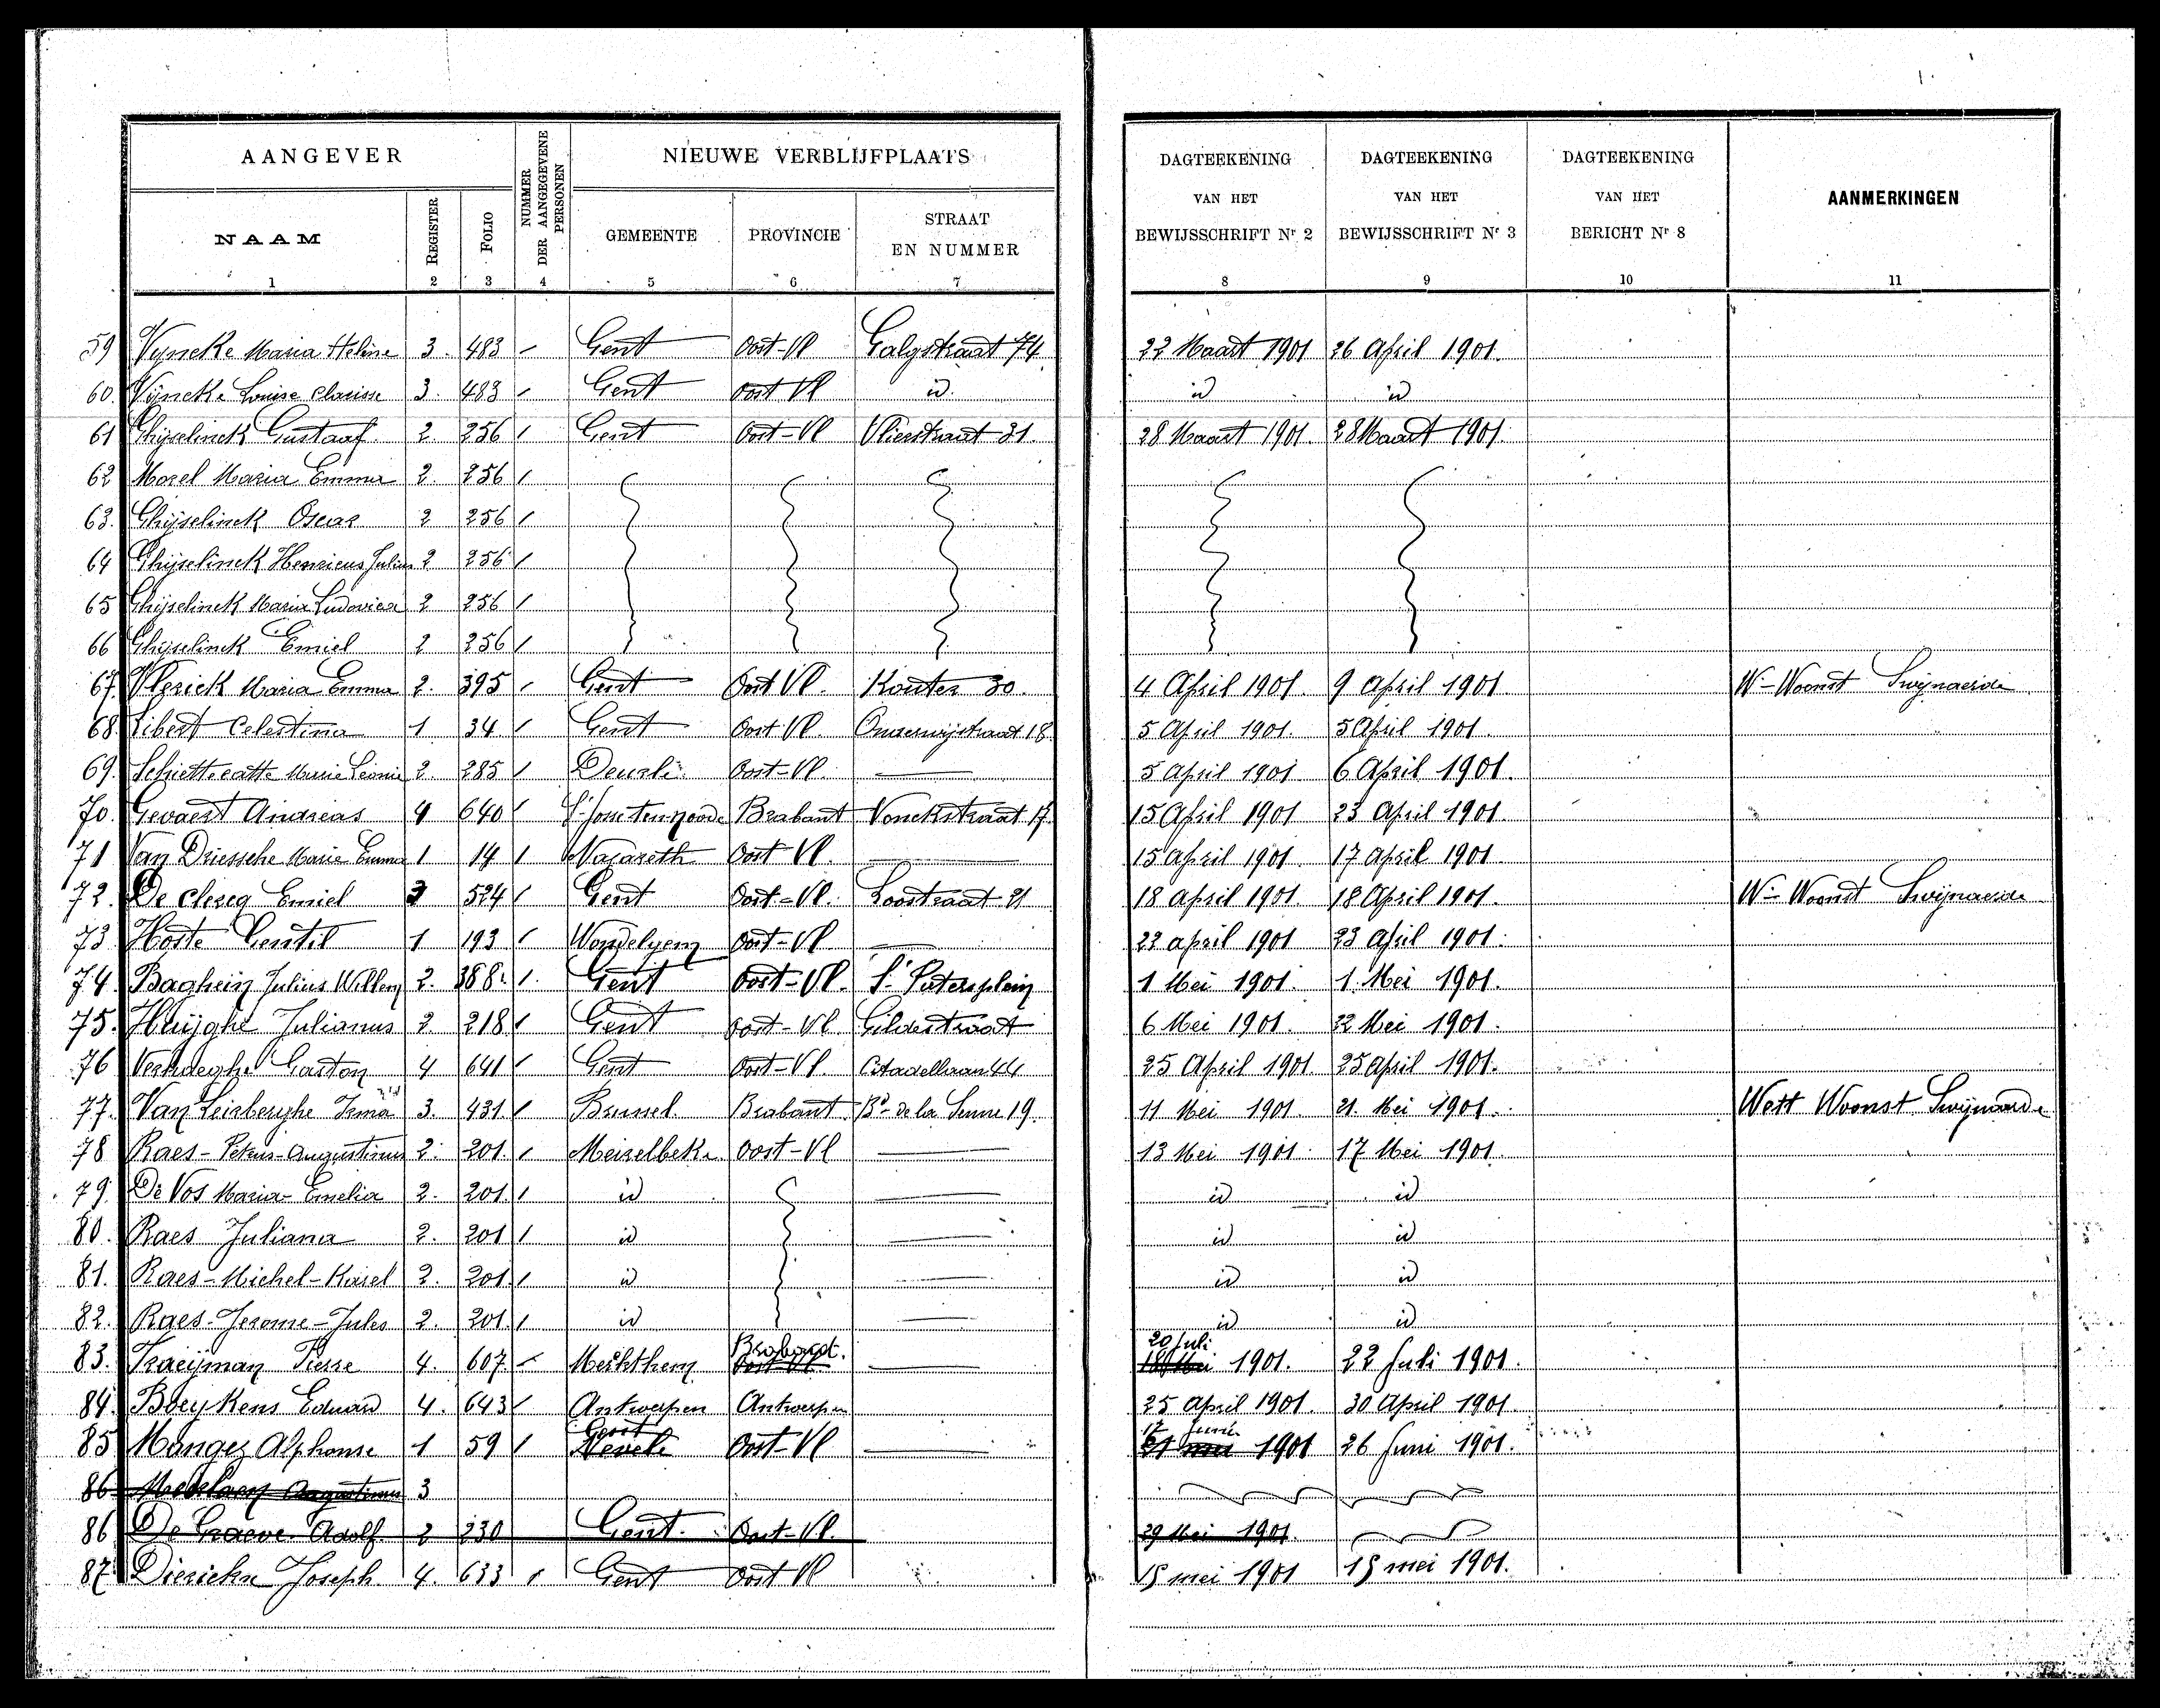 AANGEVER
NUMMER DER AANGEGEVENE PERSONEN
NIEUWE VERBLIJFPLAATS
DAGTEEKENING VAN HET BEWIJSSCHRIFT Nr 2
DAGTEEKENING VAN HET BEWIJSSCHRIFT Nr 3
DAGTEEKENING VAN HET BERICHT Nr 8
AANMERKINGEN
NAAM REGISTER FOLIO GEMEENTE PROVINCIE STRAAT EN NUMMER
1 2 3 4 5 6 7 8 9 10 11
59 Vyncke Maria Heline 3. 483 - Gent Oost-Vl Galgstraat 74 22 Maart 1901 26 April 1901.
60. Vijncke Louise Clarisse 3. 483 / Gent Oost Vl id. id id
61 Ghijselinck Gustaaf. 2. 256 1 Gent Oost-Vl Vlierstraat 31. 28 Maart 1901. 28 Maart 1901.
62 Morel Maria Emma 2. 256 /
63. Ghijselinck Oscar 2 256 /
64 Ghijselinck Henricus Julius 2 256 /
65 Ghijselinck Maria Ludovica 2 256 /
66 Ghijselinck Emiel 2 256 /
67. Vlerick Maria Emma 2. 395 / Gent Oost Vl. Kouter 30. 4 April 1901. 9 April 1901 W-Woonst Swijnaerde
68. Libert Celestina 1 34 / Gent Oost Vl. Onderwijstraat 18 5 April 1901. 5 April 1901.
69. Schiettecatte Marie Léonie 2. 285 / Deurle Oost-Vl. — 5 April 1901 6 April 1901.
70. Gevaert Andreas 4 640 / St Josse ten-noode Brabant Vonckstraat 17 15 April 1901 23 April 1901.
71 Van Driessche Marie Emma 1 14 1 Nazareth Oost Vl. — 15 April 1901 17 April 1901.
72. De Clercq Emiel 3 524 / Gent Oost-Vl. Loostraat 21 18 April 1901 18 April 1901. W- Woonst Swijnaerde
73 Hoste Gentil 1 193 / Wondelgem Oost-Vl — 22 april 1901 23 April 1901.
74. Bagheijn Julius Willem 2. 388. 1. Gent Oost-Vl. St Pietersplein 1 Mei 1901. 1. Mei 1901.
75. Huijghe Julianus 2 218 / Gent Oost-Vl Gildestraat 6 Mei 1901. 22 Mei 1901.
76 Verhaeghe Gaston 4 641 / Gent Oost-Vl. Citadellaan 44 25 April 1901 25 April 1901.
77. Van Leirberghe Irma 3. 431 / Brussel. Brabant Bd de la Senne 19. 11 Mei 1901. 21. Mei 1901. Wett Woonst Swijnaerde
78 Raes-Petrus-Augustinus 2. 201. / Meirelbeke. Oost-Vl — 13 Mei 1901. 17 Mei 1901.
79. De Vos Maria-Emelia 2. 201. / id — id id
80. Raes Juliana 2. 201 / id — id id
81. Raes-Michel-Karel 2. 201. / id — id id
82. Raes-Jerome-Jules 2. 201. / id — id id
83. Traeijman Pierre 4. 607. - Merchthem Brabant. Oost-Vl — 20 Juli 18 Mei 1901. 22 Juli 1901.
84. Boeykens Eduard 4. 643 / Antwerpen Antwerpen 25 April 1901. 30 April 1901.
85 Mangez Alphonse 1 59 / Gent Nevele Oost-Vl — 17 Juni 21 mei 1901 26 Juni 1901.
86 Augustinus 3
86 De Graeve Adolf. 2 230 Gent. Oost-Vl. 29 Mei 1901.
87. Dierickx Joseph. 4. 633 / Gent Oost Vl 15 mei 1901 15 mei 1901.